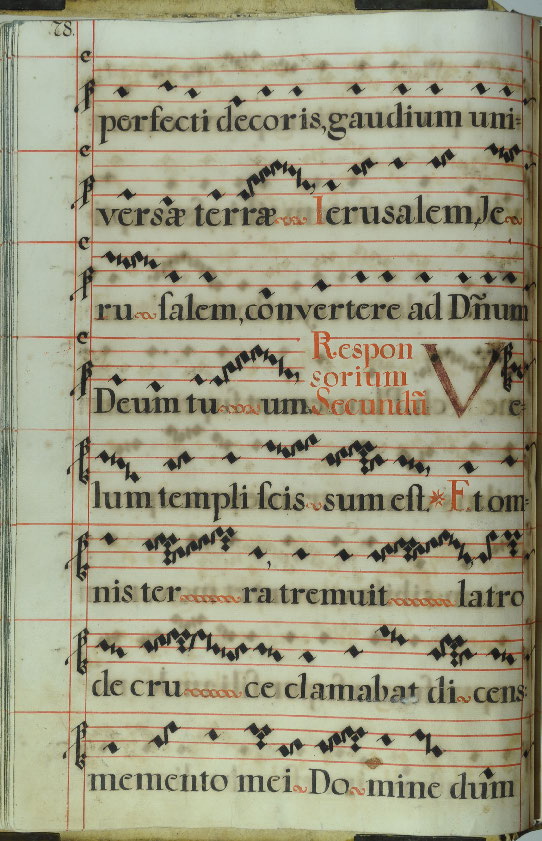 78.
perfecti decoris, gaudium uni=
versæ terræ Ierusalem, Je
ru salem, convertere ad Dñum
Deum tu um. Respon
sorium
Secundũ Ve=
lum templi scis sum est. * Et om=
nis ter ra tremuit latro
de cru ce clamabat di cens
memento mei Do mine dum